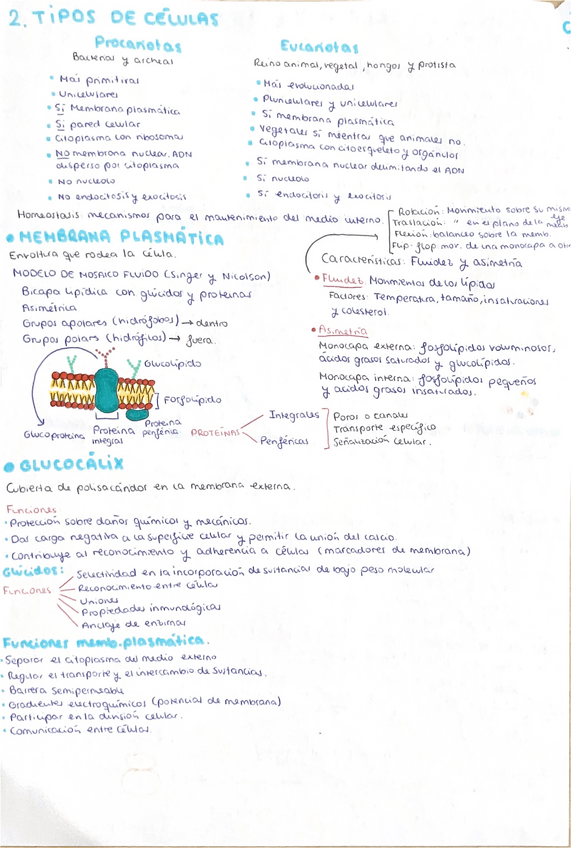 2. TIPOS DE CÉLULAS
Procariotas
Bacterias y archeas
• Más primitivas
• Unicelulares
• Sí Membrana plasmática
• Sí pared celular
• Citoplasma con ribosomas
• NO membrana nuclear. ADN
disperso por citoplasma
• No nucleolo
• No endocitosis y exocitosis
Eucariotas
Reino animal, vegetal, hongos y protista
• Más evolucionadas
• Pluricelulares y unicelulares
• Sí membrana plasmática
• Vegetales sí mientras que animales no.
• Citoplasma con citoesqueleto y orgánulos
• Sí membrana nuclear delimitando el ADN
• Sí nucleolo
• Sí endocitosis y exocitosis
Homeostasis: mecanismos para el mantenimiento del medio interno.
• MEMBRANA PLASMÁTICA
Envoltura que rodea la célula.
MODELO DE MOSAICO FLUIDO (Singer y Nicolson)
Bicapa lipídica con glúcidos y proteínas
Asimétrica
Grupos apolares (hidrófobos) → dentro
Grupos polares (hidrófilos) → fuera.
Rotación: Movimiento sobre su mismo
eje
Traslación: " en el plano de la
Flexión: balanceo sobre la memb.
Flip-flop mov. de una monocapa a
Características: Fluidez y asimetría
• Fluidez: Movimientos de los lípidos
Factores: Temperatura, tamaño, insaturaciones
y colesterol.
• Asimetría
Monocapa externa: fosfolípidos voluminosos,
ácidos grasos saturados y glucolípidos.
Monocapa interna: fosfolípidos pequeños
y ácidos grasos insaturados.
Glucolípido
Fosfolípido
Glucoproteína
Proteína integral
Proteína periférica
PROTEÍNAS
Integrales
Periféricas
Poros o canales
Transporte específico
Señalización celular.
• GLUCOCÁLIX
Cubierta de polisacáridos en la membrana externa.
Funciones:
• Protección sobre daños químicos y mecánicos.
• Dar carga negativa a la superficie celular y permitir la unión del calcio.
• Contribuye al reconocimiento y adherencia a células (marcadores de membrana)
Glúcidos:
Funciones
Selectividad en la incorporación de sustancias de bajo peso molecular
Reconocimiento entre células
Uniones
Propiedades inmunológicas
Anclaje de enzimas
Funciones memb. plasmática.
• Separar el citoplasma del medio externo
• Regular el transporte y el intercambio de sustancias.
• Barrera semipermeable
• Gradientes electroquímicos (potencial de membrana)
• Participar en la división celular.
• Comunicación entre células.